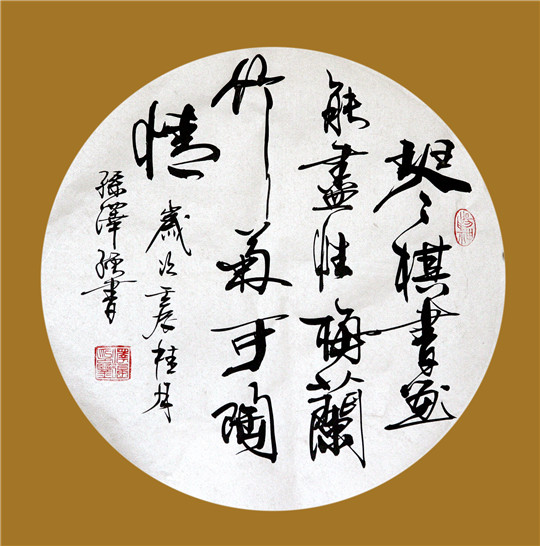 琴棋書画
能盡性梅蘭
竹菊可陶
情
歲次壬辰桂月
孫澤書